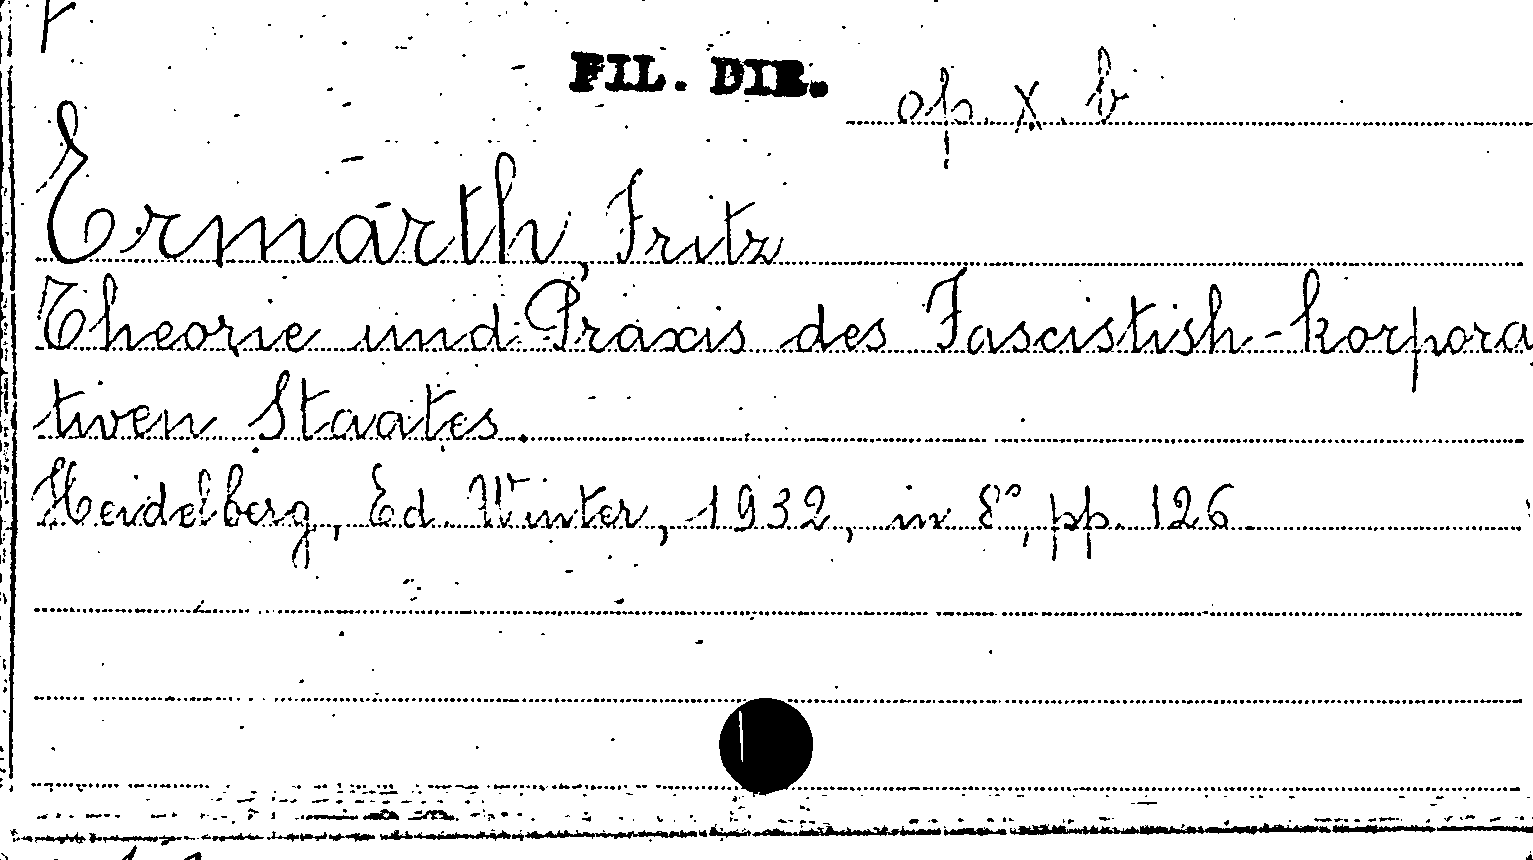 FIL. DIR. op. X. b
Ermarth, Fritz
Theorie und Praxis des Fascistish-korpora,
tiven Staates.
Heidelberg, Ed. Winter, 1932, in 8°, pp. 126.